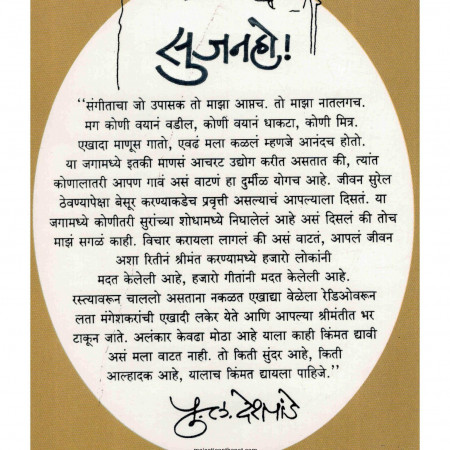 सुजनहो!
“संगीताचा जो उपासक तो माझा आप्तच. तो माझा नातलगच.
मग कोणी वयानं वडील, कोणी वयानं धाकटा, कोणी मित्र.
एखादा माणूस गातो, एवढं मला कळलं म्हणजे आनंदच होतो.
या जगामध्ये इतकी माणसं आचरट उद्योग करीत असतात की, त्यांत
कोणालातरी आपण गावं असं वाटणं हा दुर्मीळ योगच आहे. जीवन सुरेल
ठेवण्यापेक्षा बेसूर करण्याकडेच प्रवृत्ती असल्याचं आपल्याला दिसतं. या
जगामध्ये कोणीतरी सुरांच्या शोधामध्ये निघालेलं आहे असं दिसलं की तोच
माझं सगळं काही. विचार करायला लागलं की असं वाटतं, आपलं जीवन
अशा रितीनं श्रीमंत करण्यामध्ये हजारो लोकांनी
मदत केलेली आहे, हजारो गीतांनी मदत केलेली आहे.
रस्त्यावरून चाललो असताना नकळत एखाद्या वेळेला रेडिओवरून
लता मंगेशकरांची एखादी लकेर येते आणि आपल्या श्रीमंतीत भर
टाकून जाते. अलंकार केवढा मोठा आहे याला काही किंमत द्यावी
असं मला वाटत नाही. तो किती सुंदर आहे, किती
आल्हादक आहे, यालाच किंमत द्यायला पाहिजे.”
पु. ल. देशपांडे